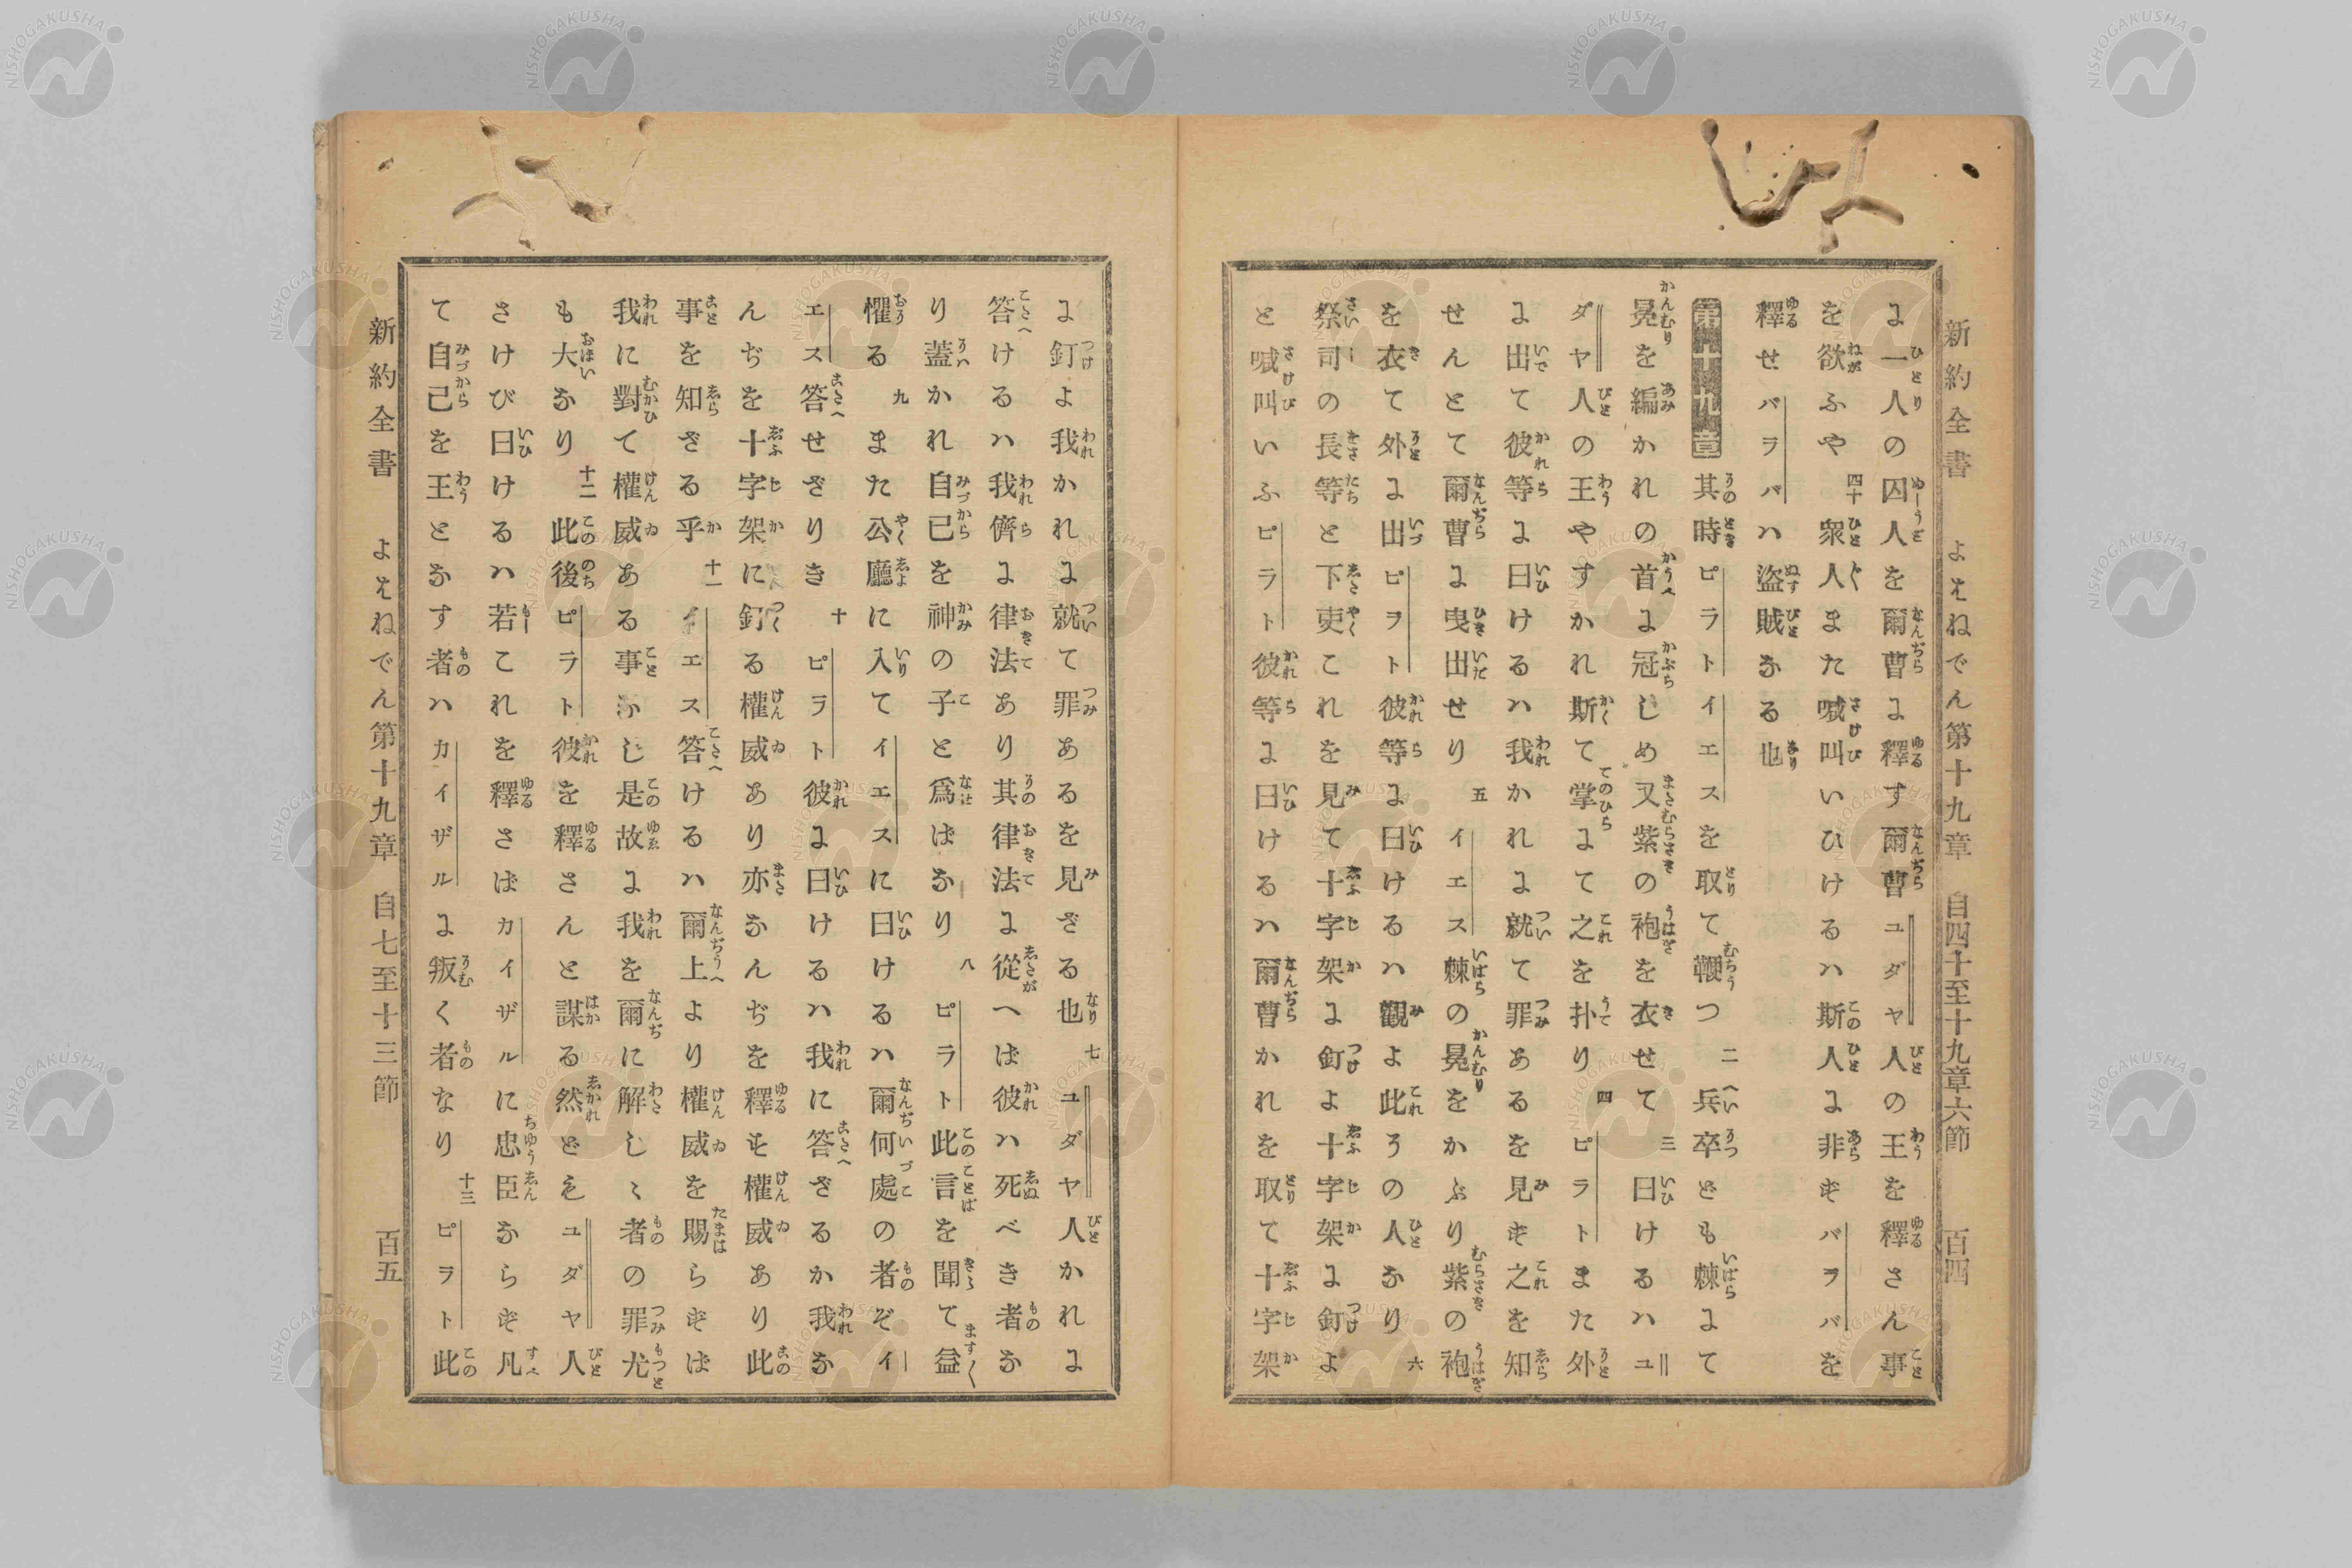 新約全書 よはねでん第十九章 自四十至十九章六節 百四
に一人の囚人を爾曹に釋す爾曹ユダヤ人の王を釋さん事
を欲ふや 四十 衆人また喊叫いひけるハ斯人に非ずバラバを
釋せバラバハ盗賊なる也
第十九章 其時ピラトイエスを取て鞭つ 二 兵卒ども棘にて
冕を編かれの首に冠しめ又紫の袍を衣せて 三 曰けるハユ
ダヤ人の王やすかれ斯て掌にて之を扑り 四 ピラトまた外
に出て彼等に曰けるハ我かれに就て罪あるを見ず之を知
せんとて爾曹に曳出せり 五 イエス棘の冕をかぶり紫の袍
を衣て外に出ピラト彼等に曰けるハ觀よ此その人なり 六
祭司の長等と下吏これを見て十字架に釘よ十字架に釘よ
と喊叫いふピラト彼等に曰けるハ爾曹かれを取て十字架
に釘よ我かれに就て罪あるを見ざる也 七 ユダヤ人かれに
答けるハ我儕に律法あり其律法に從へば彼ハ死べき者な
り蓋かれ自己を神の子と爲ばなり 八 ピラト此言を聞て益〱
懼る 九 また公廳に入てイエスに曰けるハ爾何處の者ぞイ
エス答せざりき 十 ピラト彼に曰けるハ我に答ざるか我な
んぢを十字架に釘る權威あり亦なんぢを釋す權威あり此
事を知ざる乎 十一 イエス答けるハ爾上より權威を賜らずば
我に對て權威ある事なし是故に我を爾に解しゝ者の罪尤
も大なり 十二 此後ピラト彼を釋さんと謀る然どもユダヤ人
さけび曰けるハ若これを釋さばカイザルに忠臣ならず凡
て自己を王となす者ハカイザルに叛く者なり 十三 ピラト此
新約全書 よはねでん第十九章 自七至十三節 百五